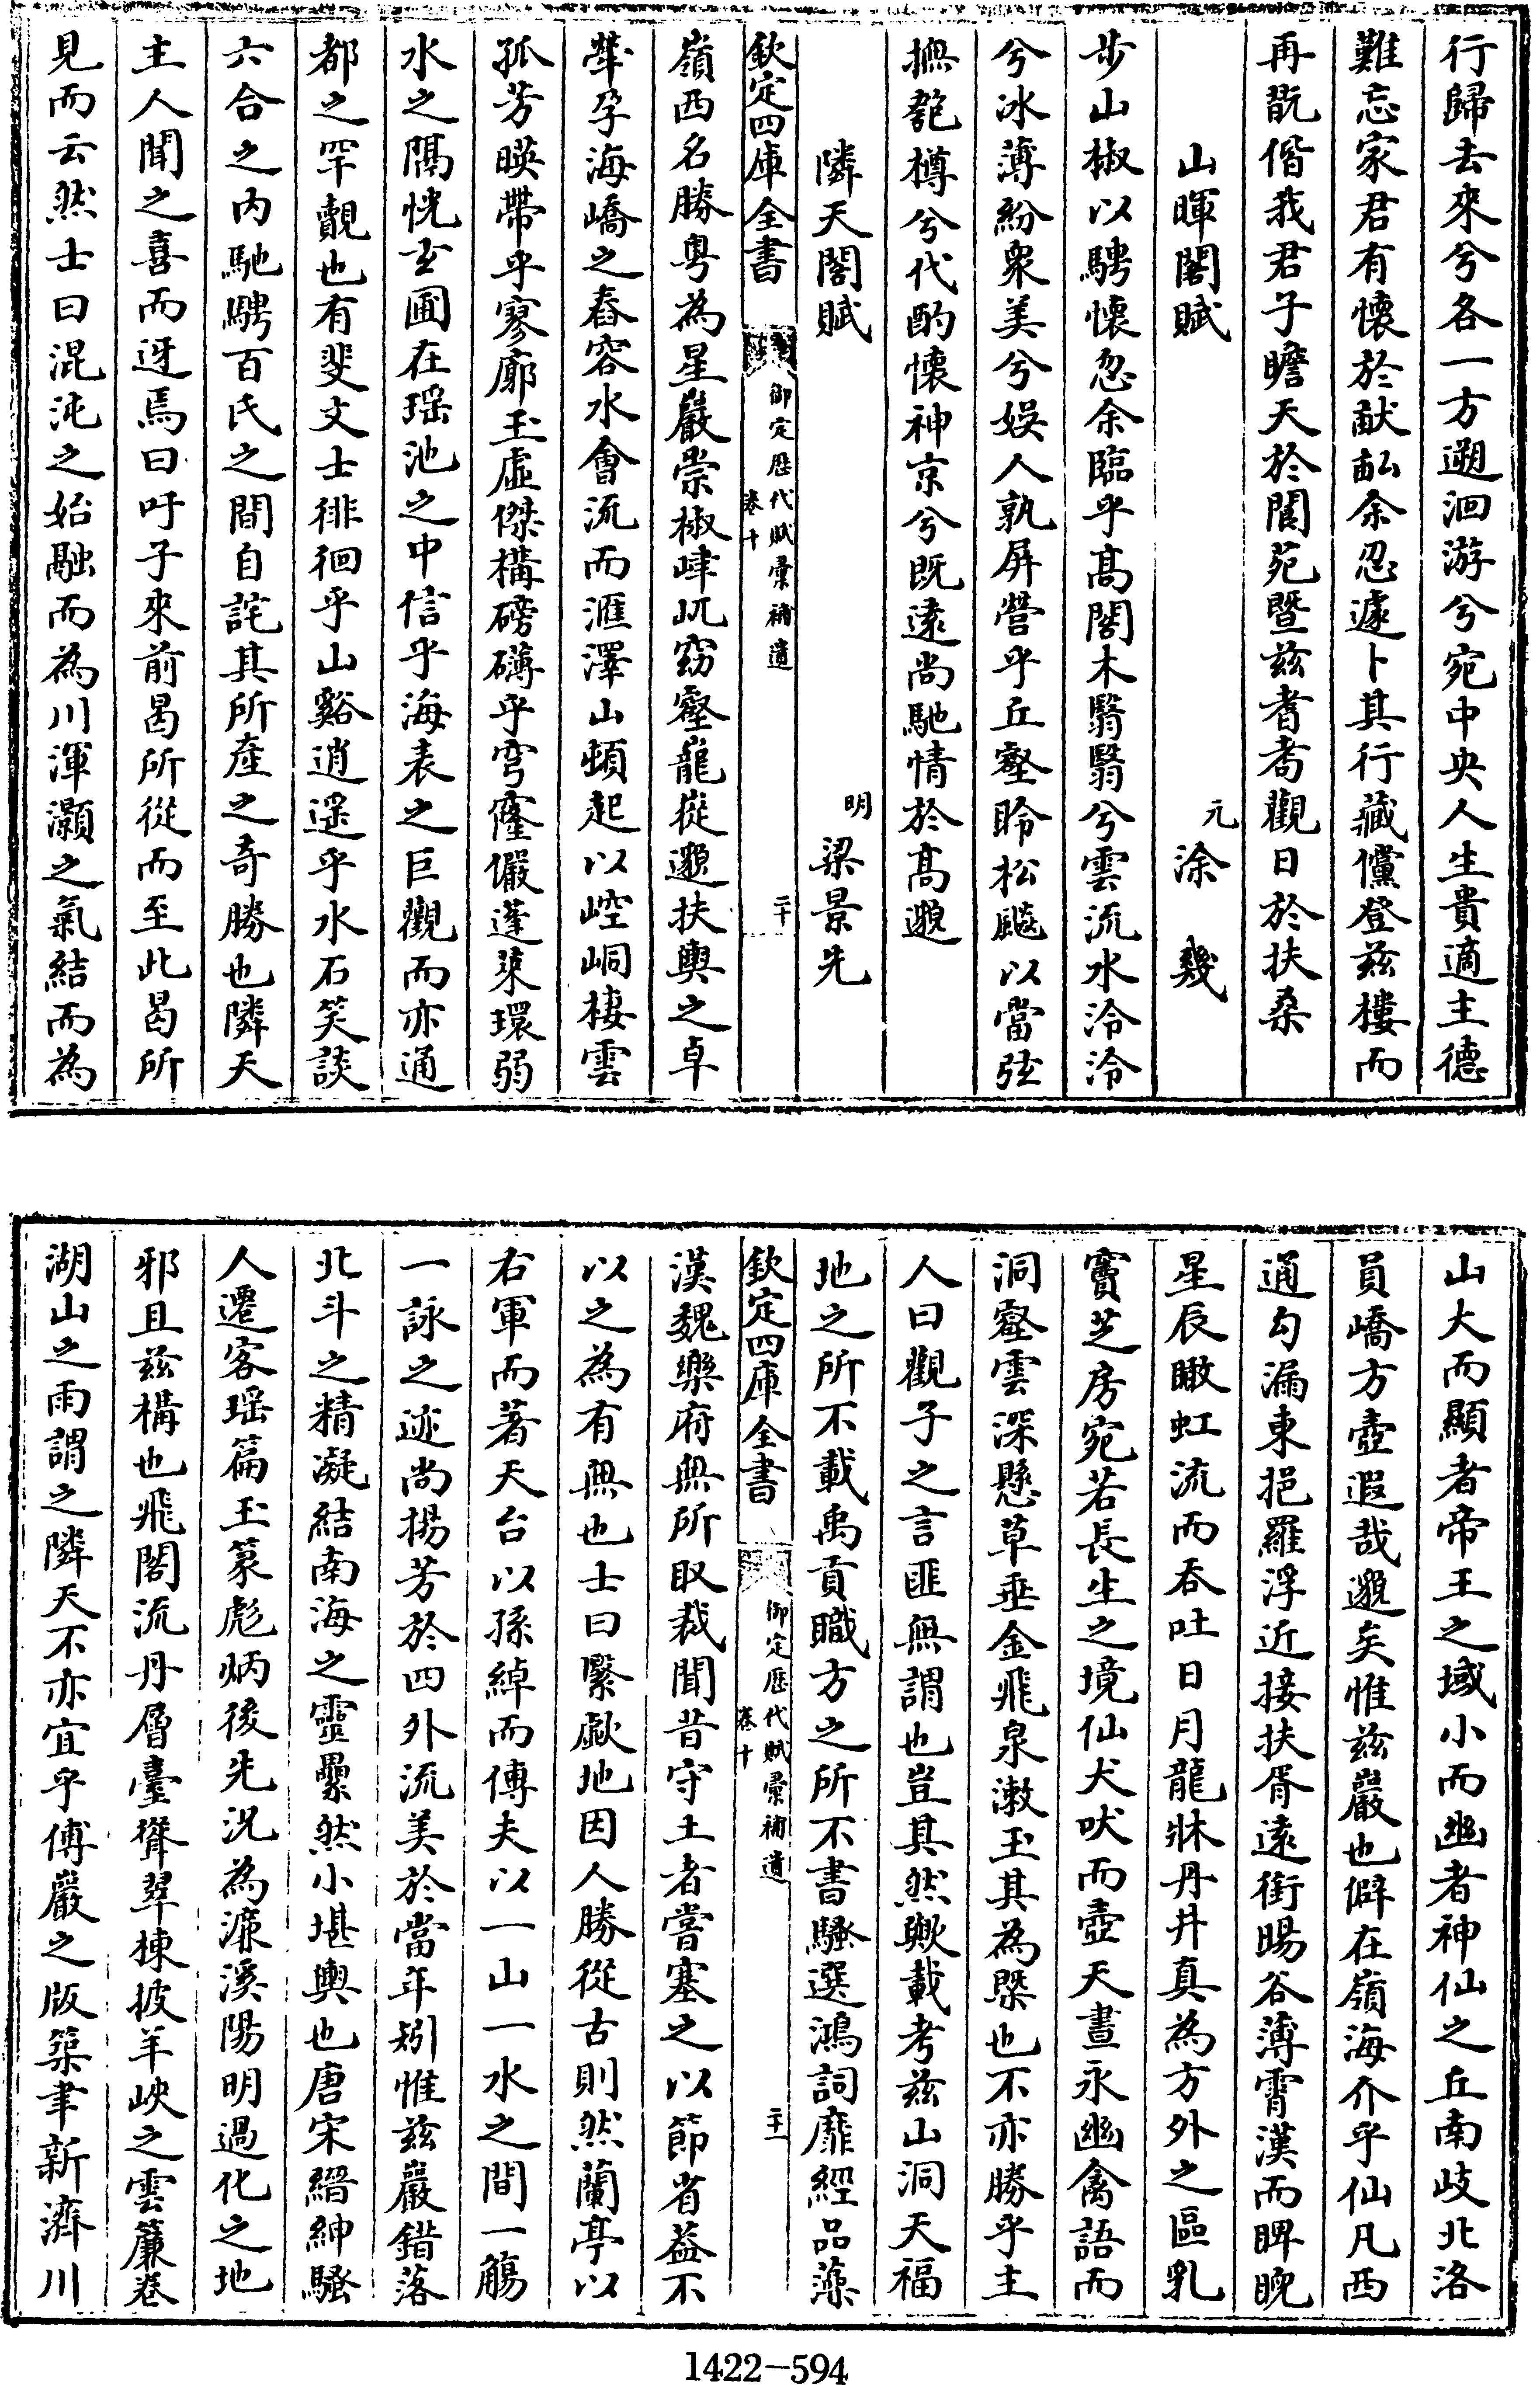 行歸去來兮各一方遡洄游兮宛中央人生貴適主德
難忘家君有懷於畎畝余忍遽卜其行藏儻登兹樓而
再翫偕我君子瞻天於閬苑暨兹耆耇觀日於扶桑
山暉閣賦 元 涂幾
步山椒以騁懷忽余臨乎高閣木翳翳兮雲流水泠泠
兮冰薄紛衆美兮娱人孰屏營乎丘壑聆松飈以當弦
撫匏樽兮代酌懷神京兮既遠尚馳情於高邈
隣天閣賦 明 梁景先
欽定四庫全書 御定歴代賦彙補遺 卷十 二十
嶺西名勝粤為星巖崇椒崒屼窈壑巃嵸邈扶輿之卓
犖孕海嶠之舂容水會流而滙澤山頓起以崆峒棲雲
孤芳暎帶乎寥廓玉虛傑構磅礴乎穹窿儼蓬萊環弱
水之隅恍玄圃在瑶池之中信乎海表之巨觀而亦通
都之罕覿也有斐文士徘徊乎山谿逍遥乎水石笑談
六合之内馳騁百氏之間自詫其所產之奇勝也隣天
主人聞之喜而迓焉曰吁子來前曷所從而至此曷所
見而云然士曰混沌之始融而為川渾灝之氣結而為
山大而顯者帝王之域小而幽者神仙之丘南歧北洛
員嶠方壺遐哉邈矣惟兹巖也僻在嶺海介乎仙凡西
通勾漏東挹羅浮近接扶胥遠銜暘谷薄霄漢而睥睨
星辰瞰虹流而吞吐日月龍牀丹井真為方外之區乳
竇芝房宛若長生之境仙犬吠而壺天晝永幽禽語而
洞壑雲深懸草垂金飛泉漱玉其為槩也不亦勝乎主
人曰觀子之言匪無謂也豈其然歟載考兹山洞天福
地之所不載禹貢職方之所不書騷選鴻詞靡經品藻
欽定四庫全書 御定歴代賦彙補遺 卷十 二十一
漢魏樂府無所取裁聞昔守土者嘗塞之以節省葢不
以之為有無也士曰緊歟地因人勝從古則然蘭亭以
右軍而著天台以孫綽而傳夫以一山一水之間一觴
一詠之迹尚揚芳於四外流美於當年矧惟兹巖錯落
北斗之精凝結南海之靈纍然小堪輿也唐宋縉紳騷
人遷客瑶篇玉篆彪炳後先況為濂溪陽明過化之地
邪且兹構也飛閣流丹層臺聳翠棟披羊峽之雲簾卷
湖山之雨謂之隣天不亦宜乎傅巖之版築聿新濟川
1422-594